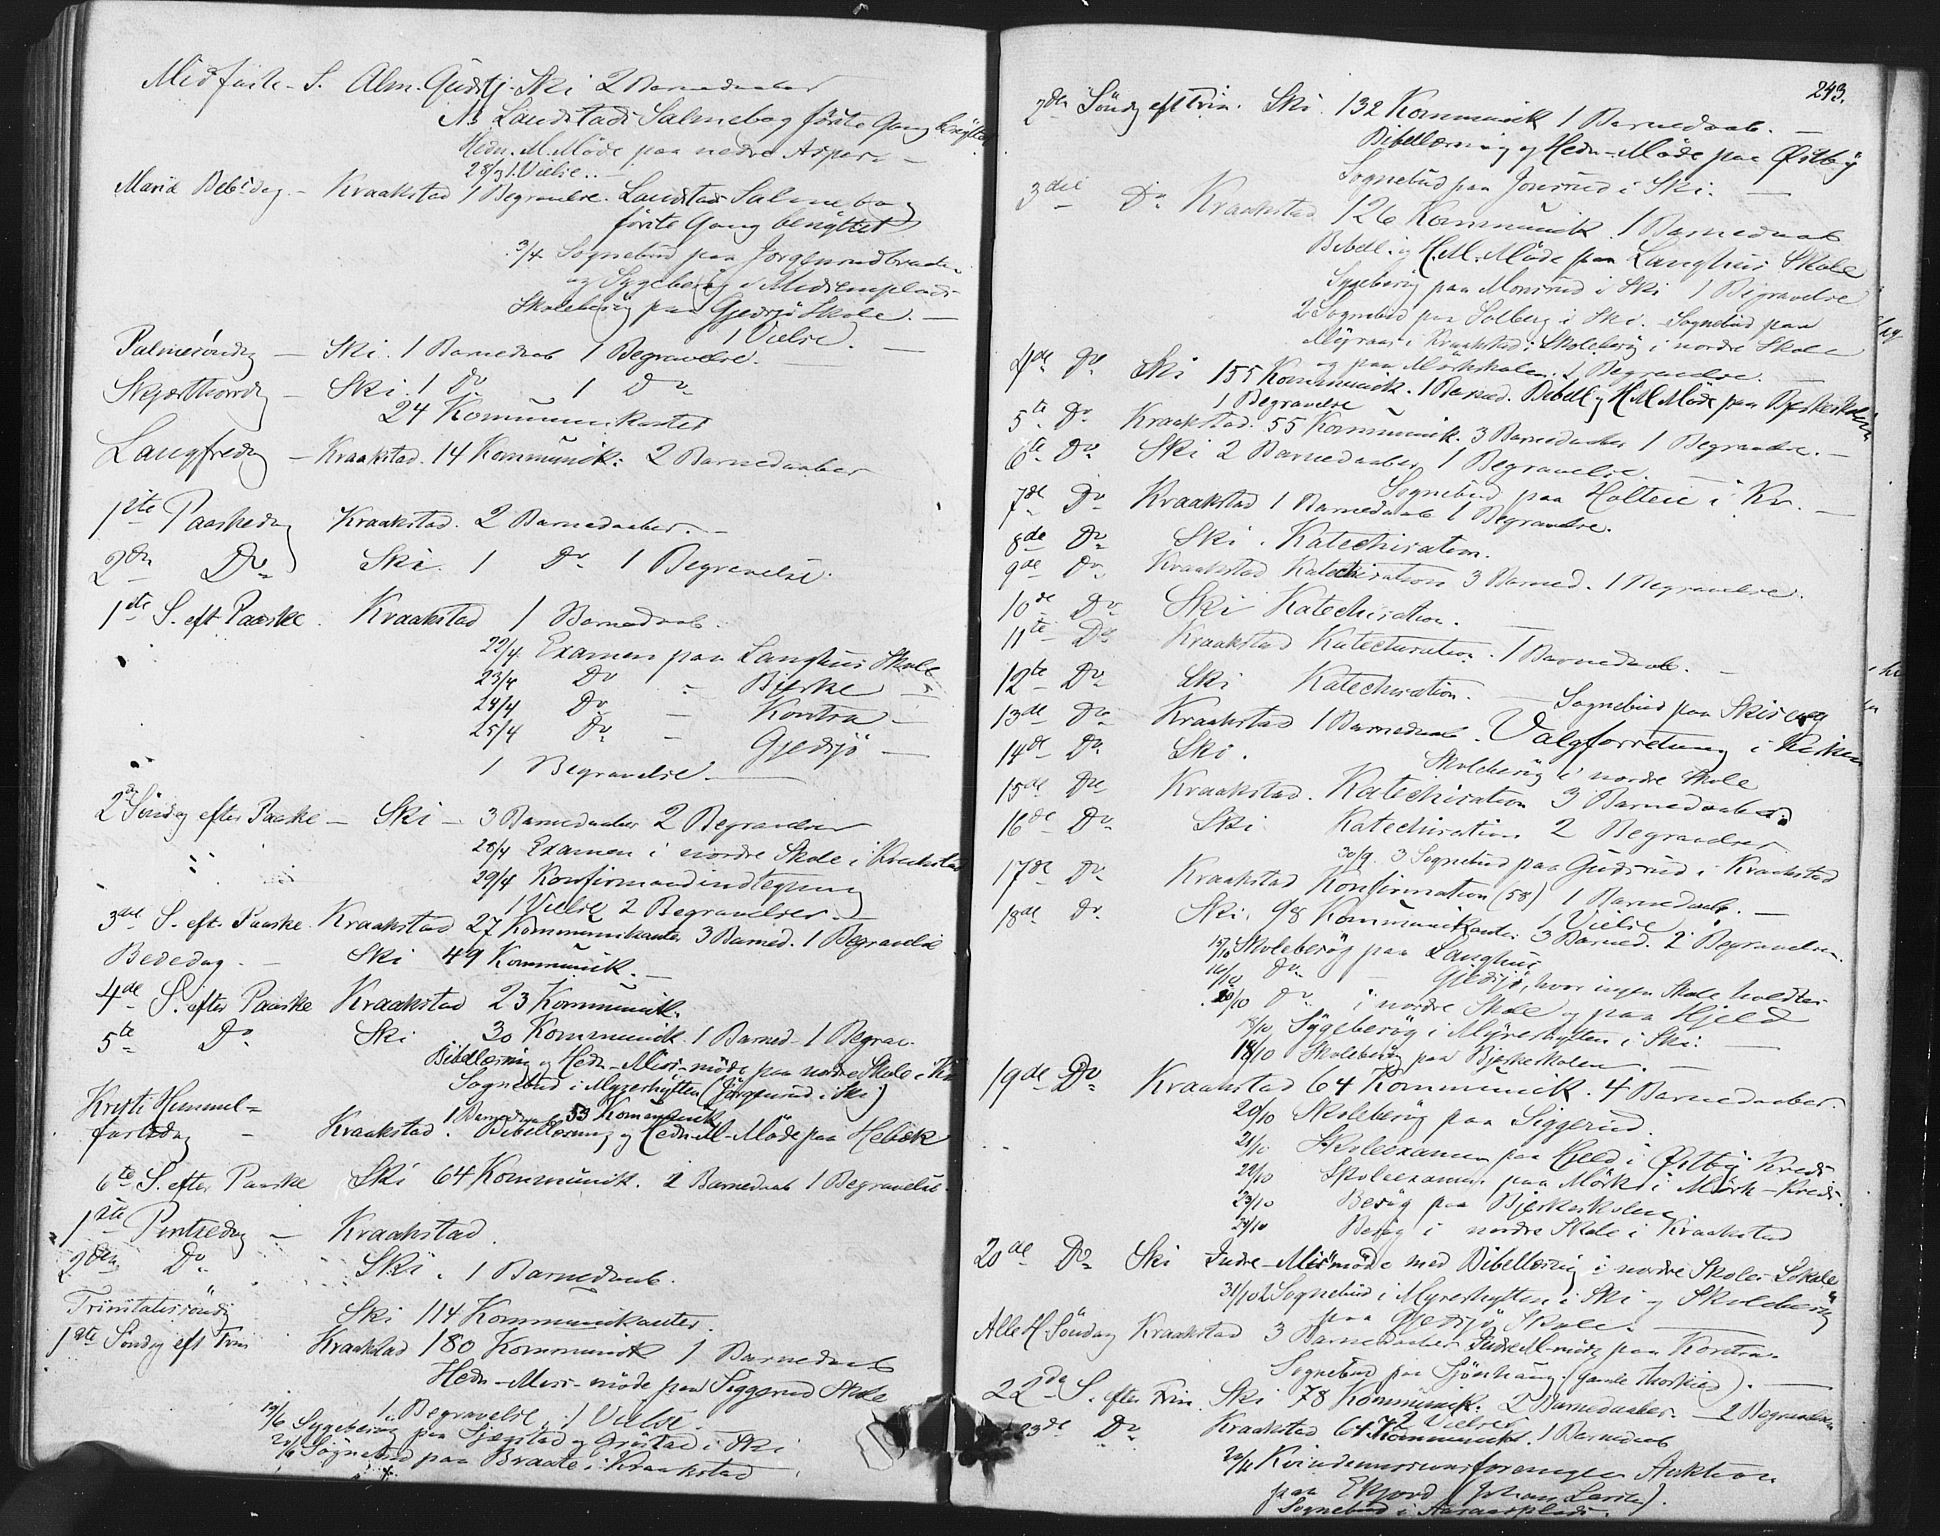 Midfaste - S. Alm. Gudstj. Ski 2 Barnedaaber
NB Landstads Salmebog første Gang benyttet
Hedn. M. Møde paa nedre Asper. —
28/3 1 Vielse. —
Mariæ Beb.dag — Kraakstad 1 Begravelse. Landstads Salmebog
første Gang benyttet
3/4 Sognebud paa Jørgensrudbraaden
og Sygebesøg i
Skolebesøg paa Gjedsjø Skole. —
1 Vielse. —
Palmesøndag — Ski. 1 Barnedaab 1 Begravelse.
Skjærthorsdg — Ski. 1 Do 1 Do
24 Kommunikanter
Langfredag — Kraakstad. 14 Kommunik: 2 Barnedaaber
1ste Paaskedag Kraakstad. 2 Barnedaaber. —
2den Do Ski. 1 Do 1 Begravelse.
1ste S. eft. Paaske. Kraakstad 1 Barnedaab.
22/4 Examen paa Langhus Skole
23/4 Do - Bjerke —
24/4 Do — Kontra —
25/4 Do — Gjedsjø —
1 Begravelse. —
2den Søndag efter Paaske — Ski — 3 Barnedaaber 2 Begravelser
28/4 Examen i nordre Skole i Kraakstad
29/4 Konfirmandindtegning
1 Vielse 2 Begravelser. —
3die S. eft. Paaske. Kraakstad 27 Kommunikanter 3 Barned. 1 Begravelse
Bededag. — Ski 49 Kommunik. —
4de S. efter Paaske Kraakstad 23 Kommunik.
5te Do Ski 30 Kommunik. 1 Barned. 1 Begrav.
Bibellæsning og Hedn-Miss-møde paa nordre Skole i Kr.
Sognebud i Myrerhytten (Jørgensrud i Ski)
Kristi Himmel=
1 Barnedaab 53 Kommunik
fartsdag — Kraakstad. Bibellæsning og Hedn.M-Møde paa Hebæk
6te S. efter Paaske Ski 64 Kommunik. 2 Barnedaab 1 Begravelse.
1ste Pintsedag — Kraakstad.
2den Do Ski. 1 Barnedaab.
Trinitatissøndag Ski 114 Kommunikanter.
1ste Søndag eft Trin Kraakstad 180 Kommunik 1 Barnedaab
Hedn-Miss-møde paa Siggerud Skole
1 Begravelse. 1 Vielse.
19/6 Sygebesøg paa Sjægstad og Grøstad i Ski
20/6 Sognebud paa Braate i Kraakstad
243.
2den Søndag eft Trin. Ski. 132 Kommunik 1 Barnedaab. —
Bibellæsning og Hedn-Møde paa Østby
Sognebud paa Jonsrud i Ski. —
3die Do Kraakstad 126 Kommunik. 1 Barnedaab
Bibell. og H.M. Møde paa Langhus Skole
Sygebesøg paa Monsrud i Ski 1 Begravelse
2 Sognebud paa Solberg i Ski. Sognebud paa
Myraas i Kraakstad. Skolebesøg i nordre Skole
og paa Mörkskolen. 1 Begravelse. —
4de Do Ski 155 Kommunik. 1 Barned. Bibell. og H.M. Møde paa Bjerkeskolen
1 Begravelse
5te Do Kraakstad. 55 Kommunik. 3 Barnedaaber 1 Begravelse. —
6te Do Ski 2 Barnedaaber 1 Begravelse.
Sognebud paa Holteie i Kr. —
7de Do Kraakstad 1 Barnedaab 1 Begravelse.
8de Do Ski. Katechisation.
9de Do Kraakstad Katechisation 3 Barned. 1 Begravelse.
10de Do Ski Katechisation. —
11te Do Kraakstad Katechisation. 1 Barnedaab. —
12te Do Ski Katechisation. —
Sognebud paa Skisvang
13de Do Kraakstad 1 Barnedaab. Valgforretning i Kirken
14de Do Ski.
Skolebesøg i nordre Skole
15de Do Kraakstad. Katechisation 3 Barnedaaber.
16de Do Ski Katechisation 2 Begravelser
30/9. 3 Sognebud paa Gudsrud i Kraakstad
17de Do Kraakstad Konfirmation (58) 1 Barnedaab. —
1 Vielse
18de Do Ski. 98 Kommunikanter 3 Barned. 2 Begravelser.
15/10 Skolebesøg paa Langhus
16/10 Do — Gjedsjø, hvor ingen Skole holdtes
Do i nordre Skole og paa Kjeld
Sygebesøg i Myrerhytten i Ski. —
18/10 Skolebesøg paa Bjerkeskolen. —
19de Do Kraakstad 64 Kommunik. 4 Barnedaaber.
20/10 Skolebesøg paa Siggerud.
21/10 Skoleexamen paa Kjeld i Østby Kreds
22/10 Skoleexamen paa Mörk i Mörk-Kreds.
23/10 Besøg paa Bjerkeskolen
24/10 Besøg i nordre Skole i Kraakstad
20de Do Ski Indre-Missmøde med Bibellæsning i nordre Skoles Lokale
31/10 2 Sognebud i Myrerhytten i Ski og Skolebesøg
paa Gjedsjø Skole. —
Alle H. Søndag Kraakstad 3 Barnedaaber Indre M-møde paa Kontra.
Sognebud paa (gamle Thorkild). —
22de S. efter Trin. Ski 78 Kommunik. 2 Barnedaaber. — 2 Begravelser
2 Vielser
23de Do Kraakstad 64 Kommunik. 1 Barnedaab
20/11 Kvindemissionsforeningens Auktion
paa Ekjord (Johan Larsen).
Sognebud i Aaraasplads.